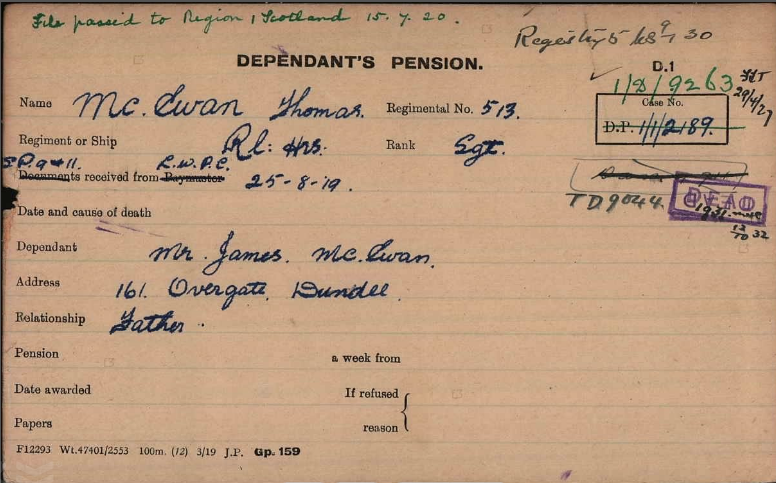 File passed to Region 1 Scotland 15.7.20.
Registry 30
DEPENDANT'S PENSION.
D.1
1/8/9263
29/4/27
Name Mc. Ewan Thomas. Regimental No. 513.
Case No.
D.P. 1/1/2189.
Regiment or Ship Rl: Hrs. Rank Sgt.
L.W.P.C.
Documents received from Paymaster 25-8-19.
TD9044
DEAD
1931
12/TD 32
Date and cause of death
Dependant Mr. James. Mc. Ewan.
Address 161. Overgate, Dundee.
Relationship Father.
Pension a week from
Date awarded If refused
Papers reason
F12293 Wt.47401/2553 100m. (12) 3/19 J.P. Gp. 159